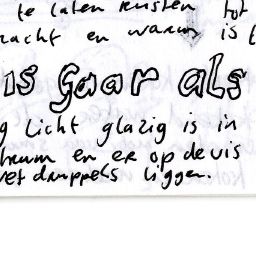 te laten rusten tot
acht en warm is
is gaar als
g licht glazig is in
en er op de vis
vet druppels liggen.